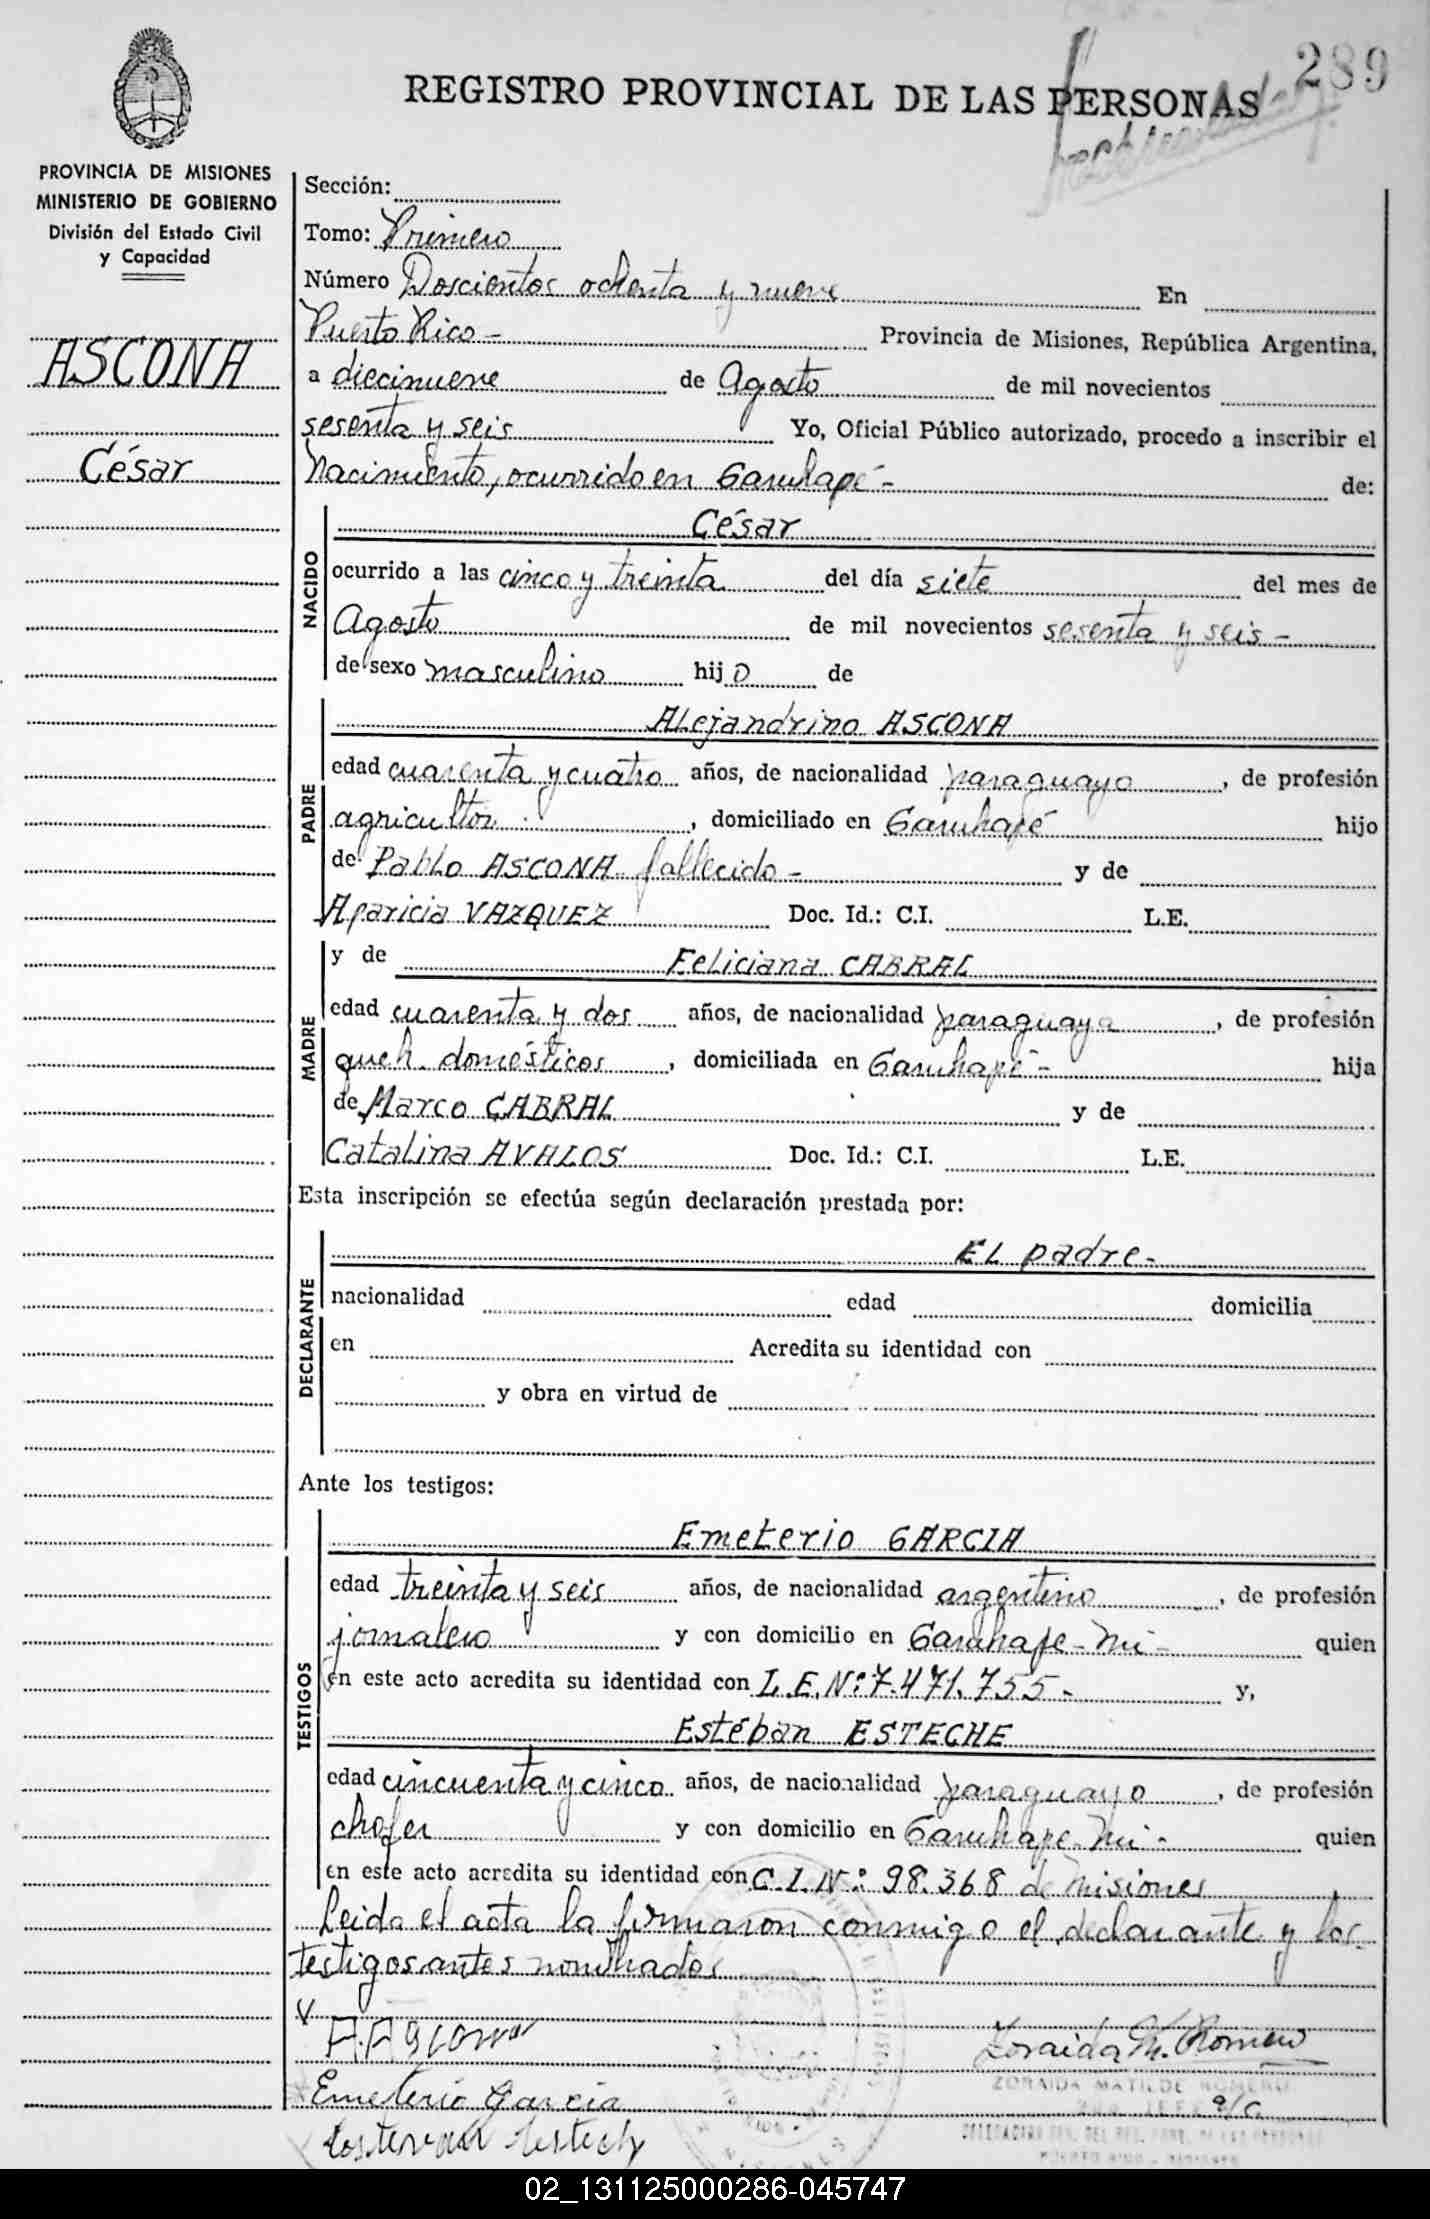 289
REGISTRO PROVINCIAL DE LAS PERSONAS
PROVINCIA DE MISIONES
MINISTERIO DE GOBIERNO
División del Estado Civil
y Capacidad
ASCONA
César
Sección:
Tomo: Primero
Número Doscientos ochenta y nueve En
Puerto Rico - Provincia de Misiones, República Argentina,
a diecinueve de Agosto de mil novecientos
sesenta y seis Yo, Oficial Público autorizado, procedo a inscribir el
Nacimiento, ocurrido en Garuhapé - de:
NACIDO
César
ocurrido a las cinco y treinta del día siete del mes de
Agosto de mil novecientos sesenta y seis -
de sexo masculino hijo de
PADRE
Alejandrino ASCONA
edad cuarenta y cuatro años, de nacionalidad paraguayo, de profesión
agricultor, domiciliado en Garuhapé hijo
de Pablo ASCONA fallecido - y de
Aparicia VAZQUEZ Doc. Id.: C.I. L.E.
MADRE
y de Feliciana CABRAL
edad cuarenta y dos años, de nacionalidad paraguaya, de profesión
queh. domésticos, domiciliada en Garuhapé - hija
de Marco CABRAL y de
Catalina AVALOS Doc. Id.: C.I. L.E.
Esta inscripción se efectúa según declaración prestada por:
DECLARANTE
El padre -
nacionalidad edad domicilia
en Acredita su identidad con
y obra en virtud de
Ante los testigos:
TESTIGOS
Emeterio GARCIA
edad treinta y seis años, de nacionalidad argentino, de profesión
jornalero y con domicilio en Garuhape - Mi - quien
en este acto acredita su identidad con L.E. Nº: 7.471.755 - y,
Estéban ESTECHE
edad cincuenta y cinco años, de nacionalidad paraguayo, de profesión
chofer y con domicilio en Garuhape - Mi - quien
en este acto acredita su identidad con C.I. Nº: 98.368 de Misiones
Leida el acta la firmaron conmigo el declarante y los
testigos antes nombrados
A. Ascona
Zoraida M. Romero
ZORAIDA MATILDE ROMERO
Emeterio Garcia
a/c
02_131125000286-045747